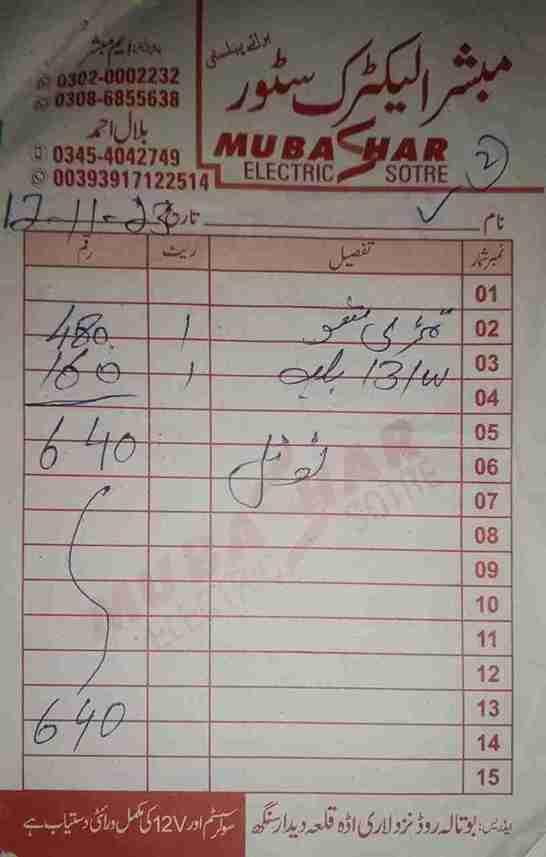 پروپرائیٹر: ایم مبشر
0302-0002232
0308-6855638
بلال احمد
0345-4042749
00393917122514
مبشر الیکٹرک سٹور
MUBASHAR
ELECTRIC SOTRE
2
نام
تاریخ 12-11-23
نمبر شمار تفصیل ریٹ رقم
01
02 1 480
03 131w بلب 1 160
04
05
06 ٹوٹل 640
07
08
09
10
11
12
13
14 640
15
MUBASHAR
ELECTRIC SOTRE
ایڈریس: بوتالہ روڈ نزد لاری اڈہ قلعہ دیدار سنگھ
سولر سسٹم اور 12V کی مکمل ورائٹی دستیاب ہے